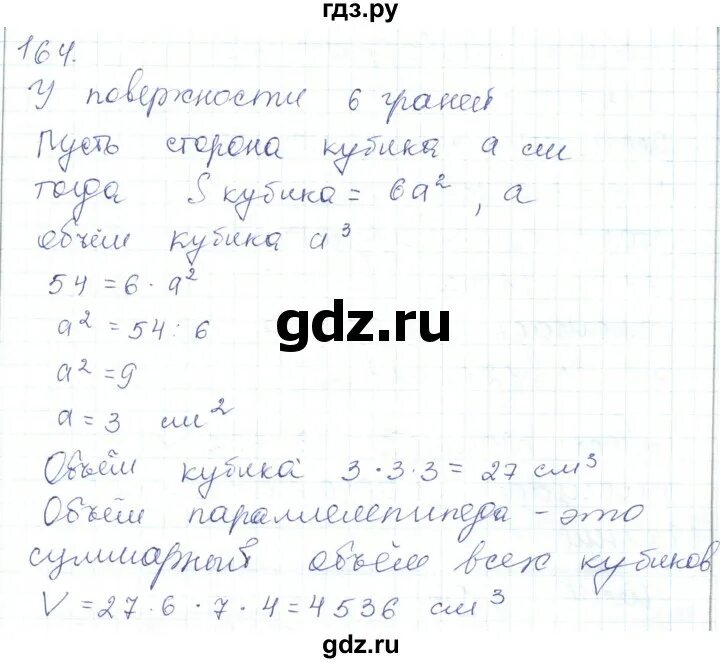 гдз.ру
164.
У поверхности 6 граней
Пусть сторона кубика a см
тогда S кубика = 6a², а
объём кубика a³
54 = 6 · a²
a² = 54 : 6
gdz.ru
a² = 9
a = 3 см²
Объём кубика 3 · 3 · 3 = 27 см³
Объём параллелепипеда - это
суммарный объём всех кубиков
V = 27 · 6 · 7 · 4 = 4536 см³
gdz.ru